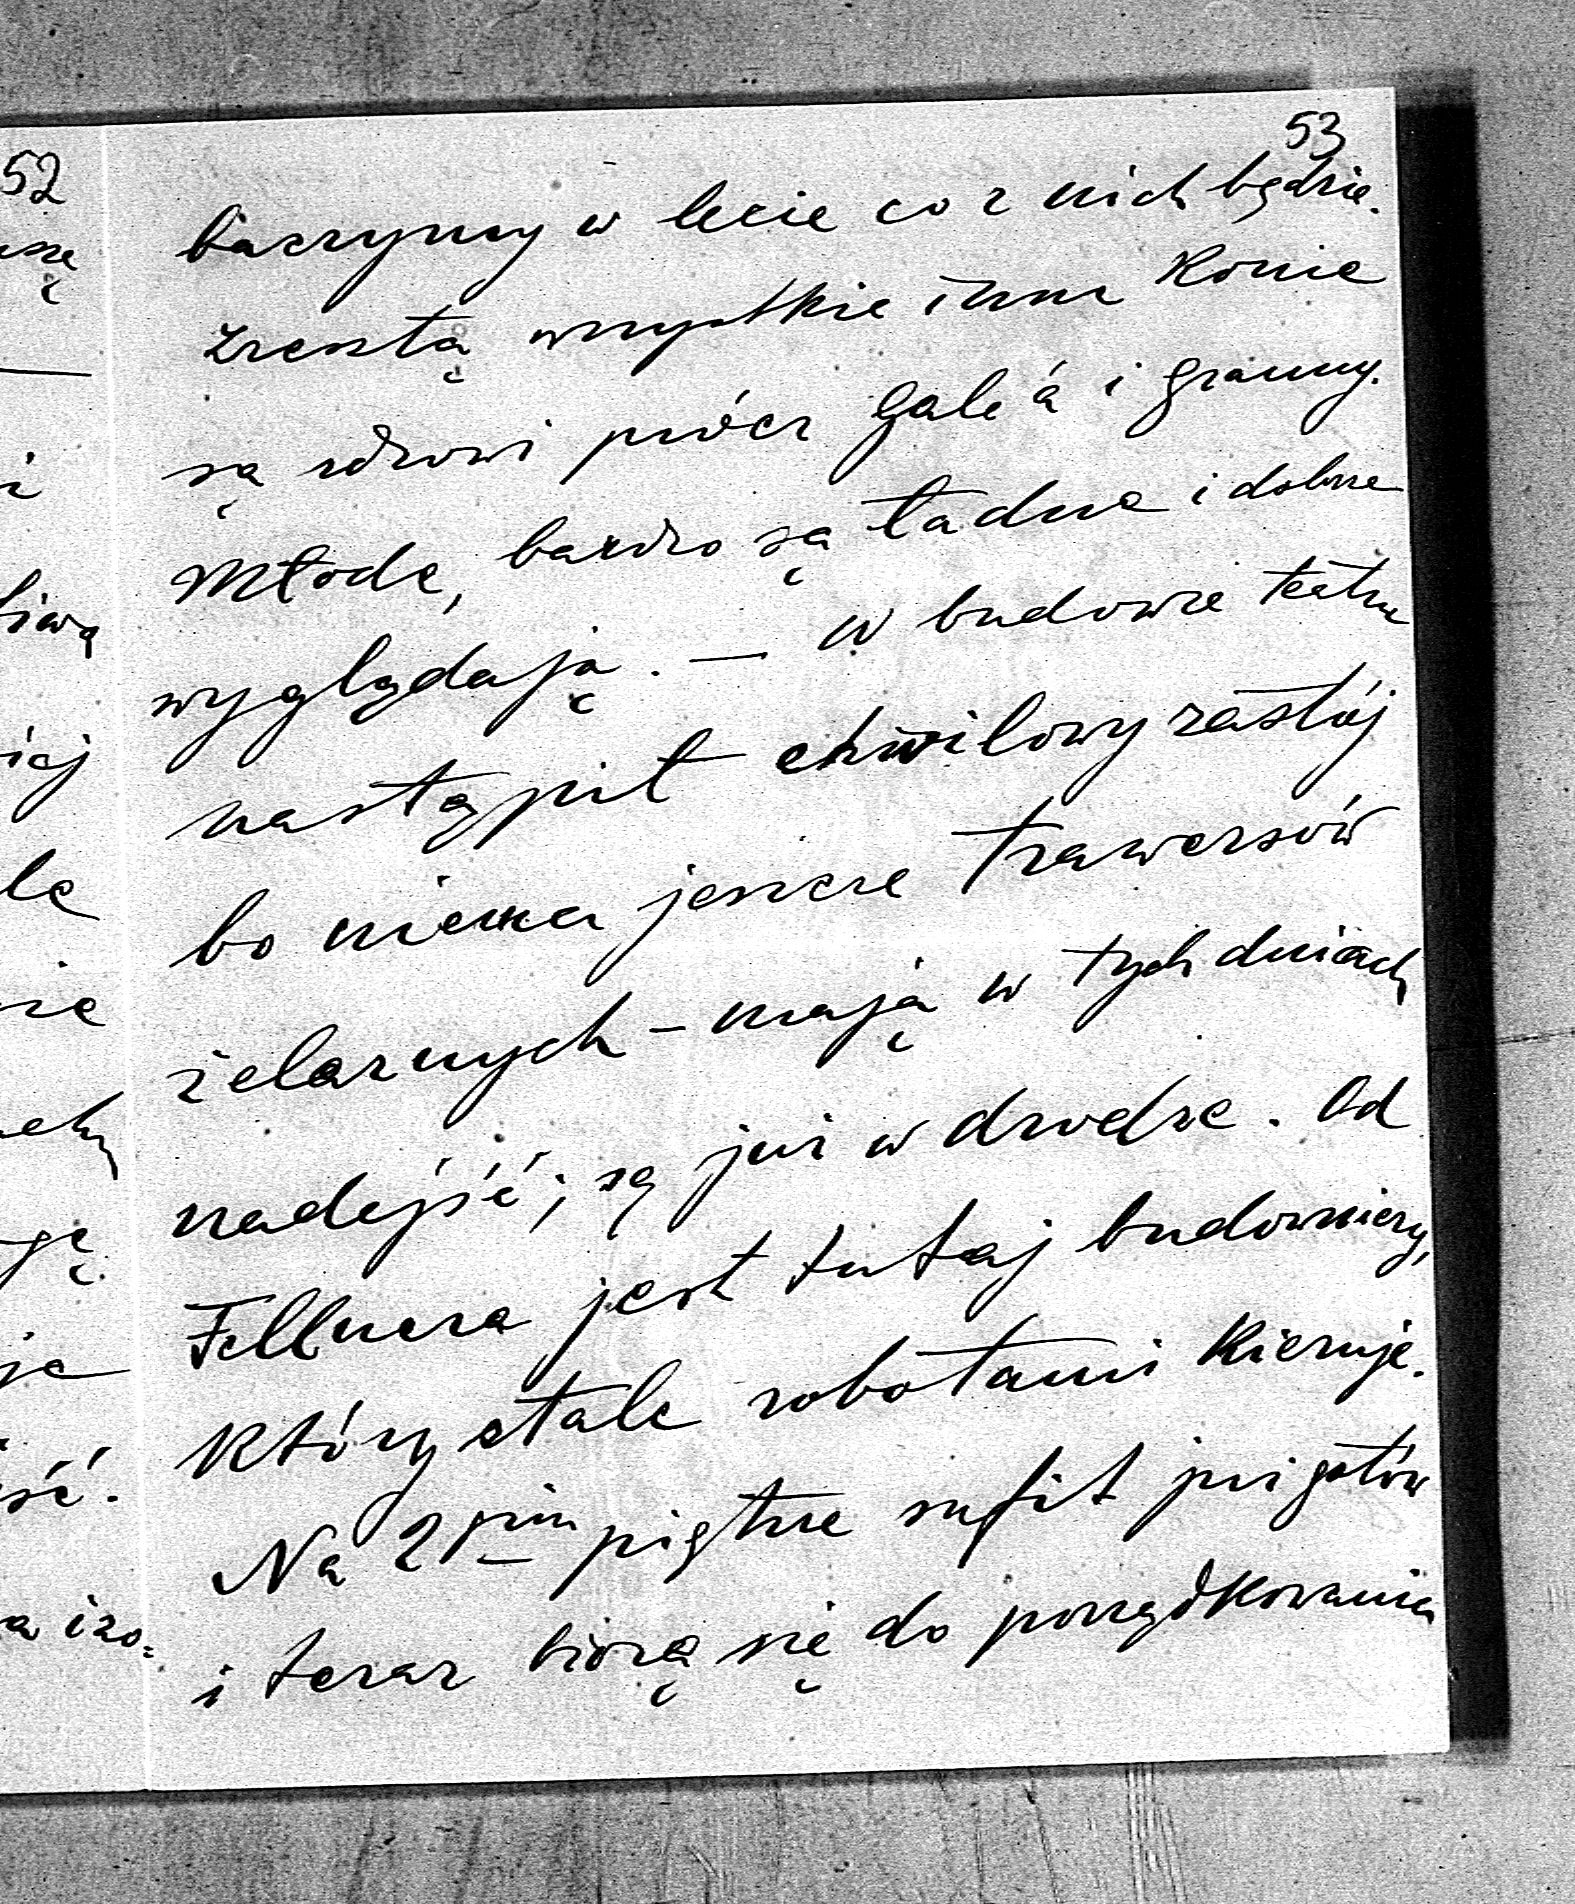 52
53
baczymy w lecie co z nich będzie.
zresztą wszystkie inne konie
są zdrowi prócz Gale'á i Granny.
Młode, bardzo są ładne i dobrze
wyglądają. — W budowie teatru
nastąpił chwilowy zastój
bo niema jeszcze trawersów
żelaznych – mają w tych dniach
nadejść; są już w drodze. Od
Fellnera jest tutaj budowniczy,
który stale robotami kieruje.
Na 2giem piętrze sufit już gotów
i teraz biorą się do porządkowania